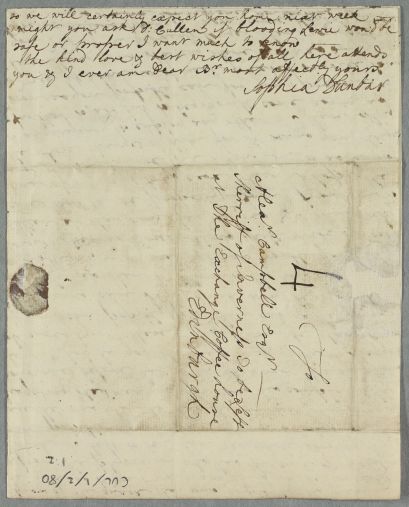 so we will certainly expect you home next week
might you ask Dr. Cullen if blooding Lewie wou'd be
safe or proper I want much to know
the kind love & best wishes of all here attends
you & I ever am Dear Br. most affectly yours
Sophia Dunbar
To
4
Alexr. Campbell Esqr.
Sherriff of Inverness to be left
at the Exchange Coffee house
Edinburgh
CUL/1/2/80
12